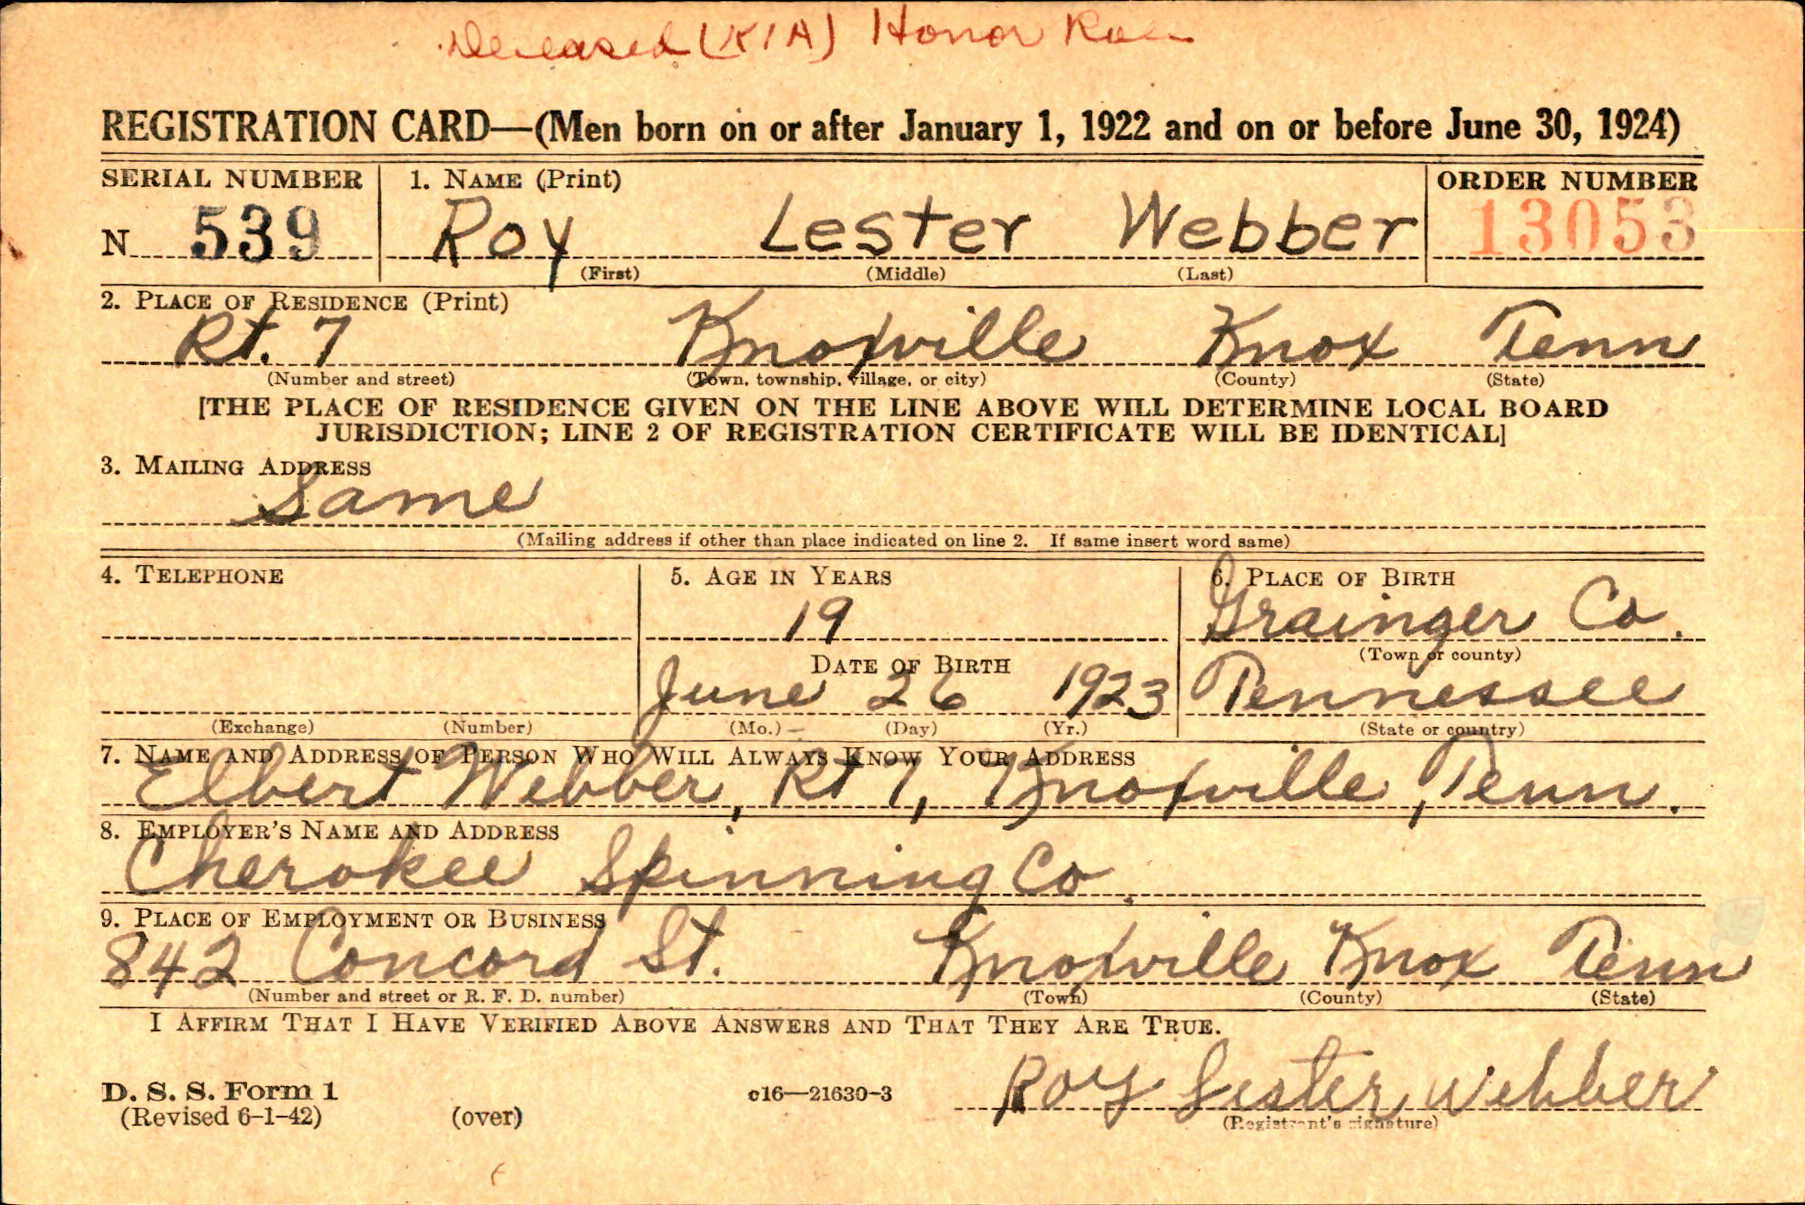 Deceased (KIA) Honor Roll
REGISTRATION CARD—(Men born on or after January 1, 1922 and on or before June 30, 1924)
SERIAL NUMBER 1. NAME (Print) ORDER NUMBER
N 539 Roy Lester Webber 13053
(First) (Middle) (Last)
2. PLACE OF RESIDENCE (Print)
Rt. 7 Knoxville Knox Tenn
(Number and street) (Town, township, village, or city) (County) (State)
[THE PLACE OF RESIDENCE GIVEN ON THE LINE ABOVE WILL DETERMINE LOCAL BOARD
JURISDICTION; LINE 2 OF REGISTRATION CERTIFICATE WILL BE IDENTICAL]
3. MAILING ADDRESS
Same
(Mailing address if other than place indicated on line 2. If same insert word same)
4. TELEPHONE 5. AGE IN YEARS 6. PLACE OF BIRTH
19 Grainger Co.
(Town or county)
DATE OF BIRTH
June 26 1923 Tennessee
(Exchange) (Number) (Mo.) (Day) (Yr.) (State or country)
7. NAME AND ADDRESS OF PERSON WHO WILL ALWAYS KNOW YOUR ADDRESS
Elbert Webber, Rt 7, Knoxville, Tenn.
8. EMPLOYER'S NAME AND ADDRESS
Cherokee Spinning Co.
9. PLACE OF EMPLOYMENT OR BUSINESS
842 Concord St. Knoxville Knox Tenn
(Number and street or R. F. D. number) (Town) (County) (State)
I AFFIRM THAT I HAVE VERIFIED ABOVE ANSWERS AND THAT THEY ARE TRUE.
D. S. S. Form 1 c16—21630-3 Roy Lester Webber
(Revised 6-1-42) (over) (Registrant's signature)